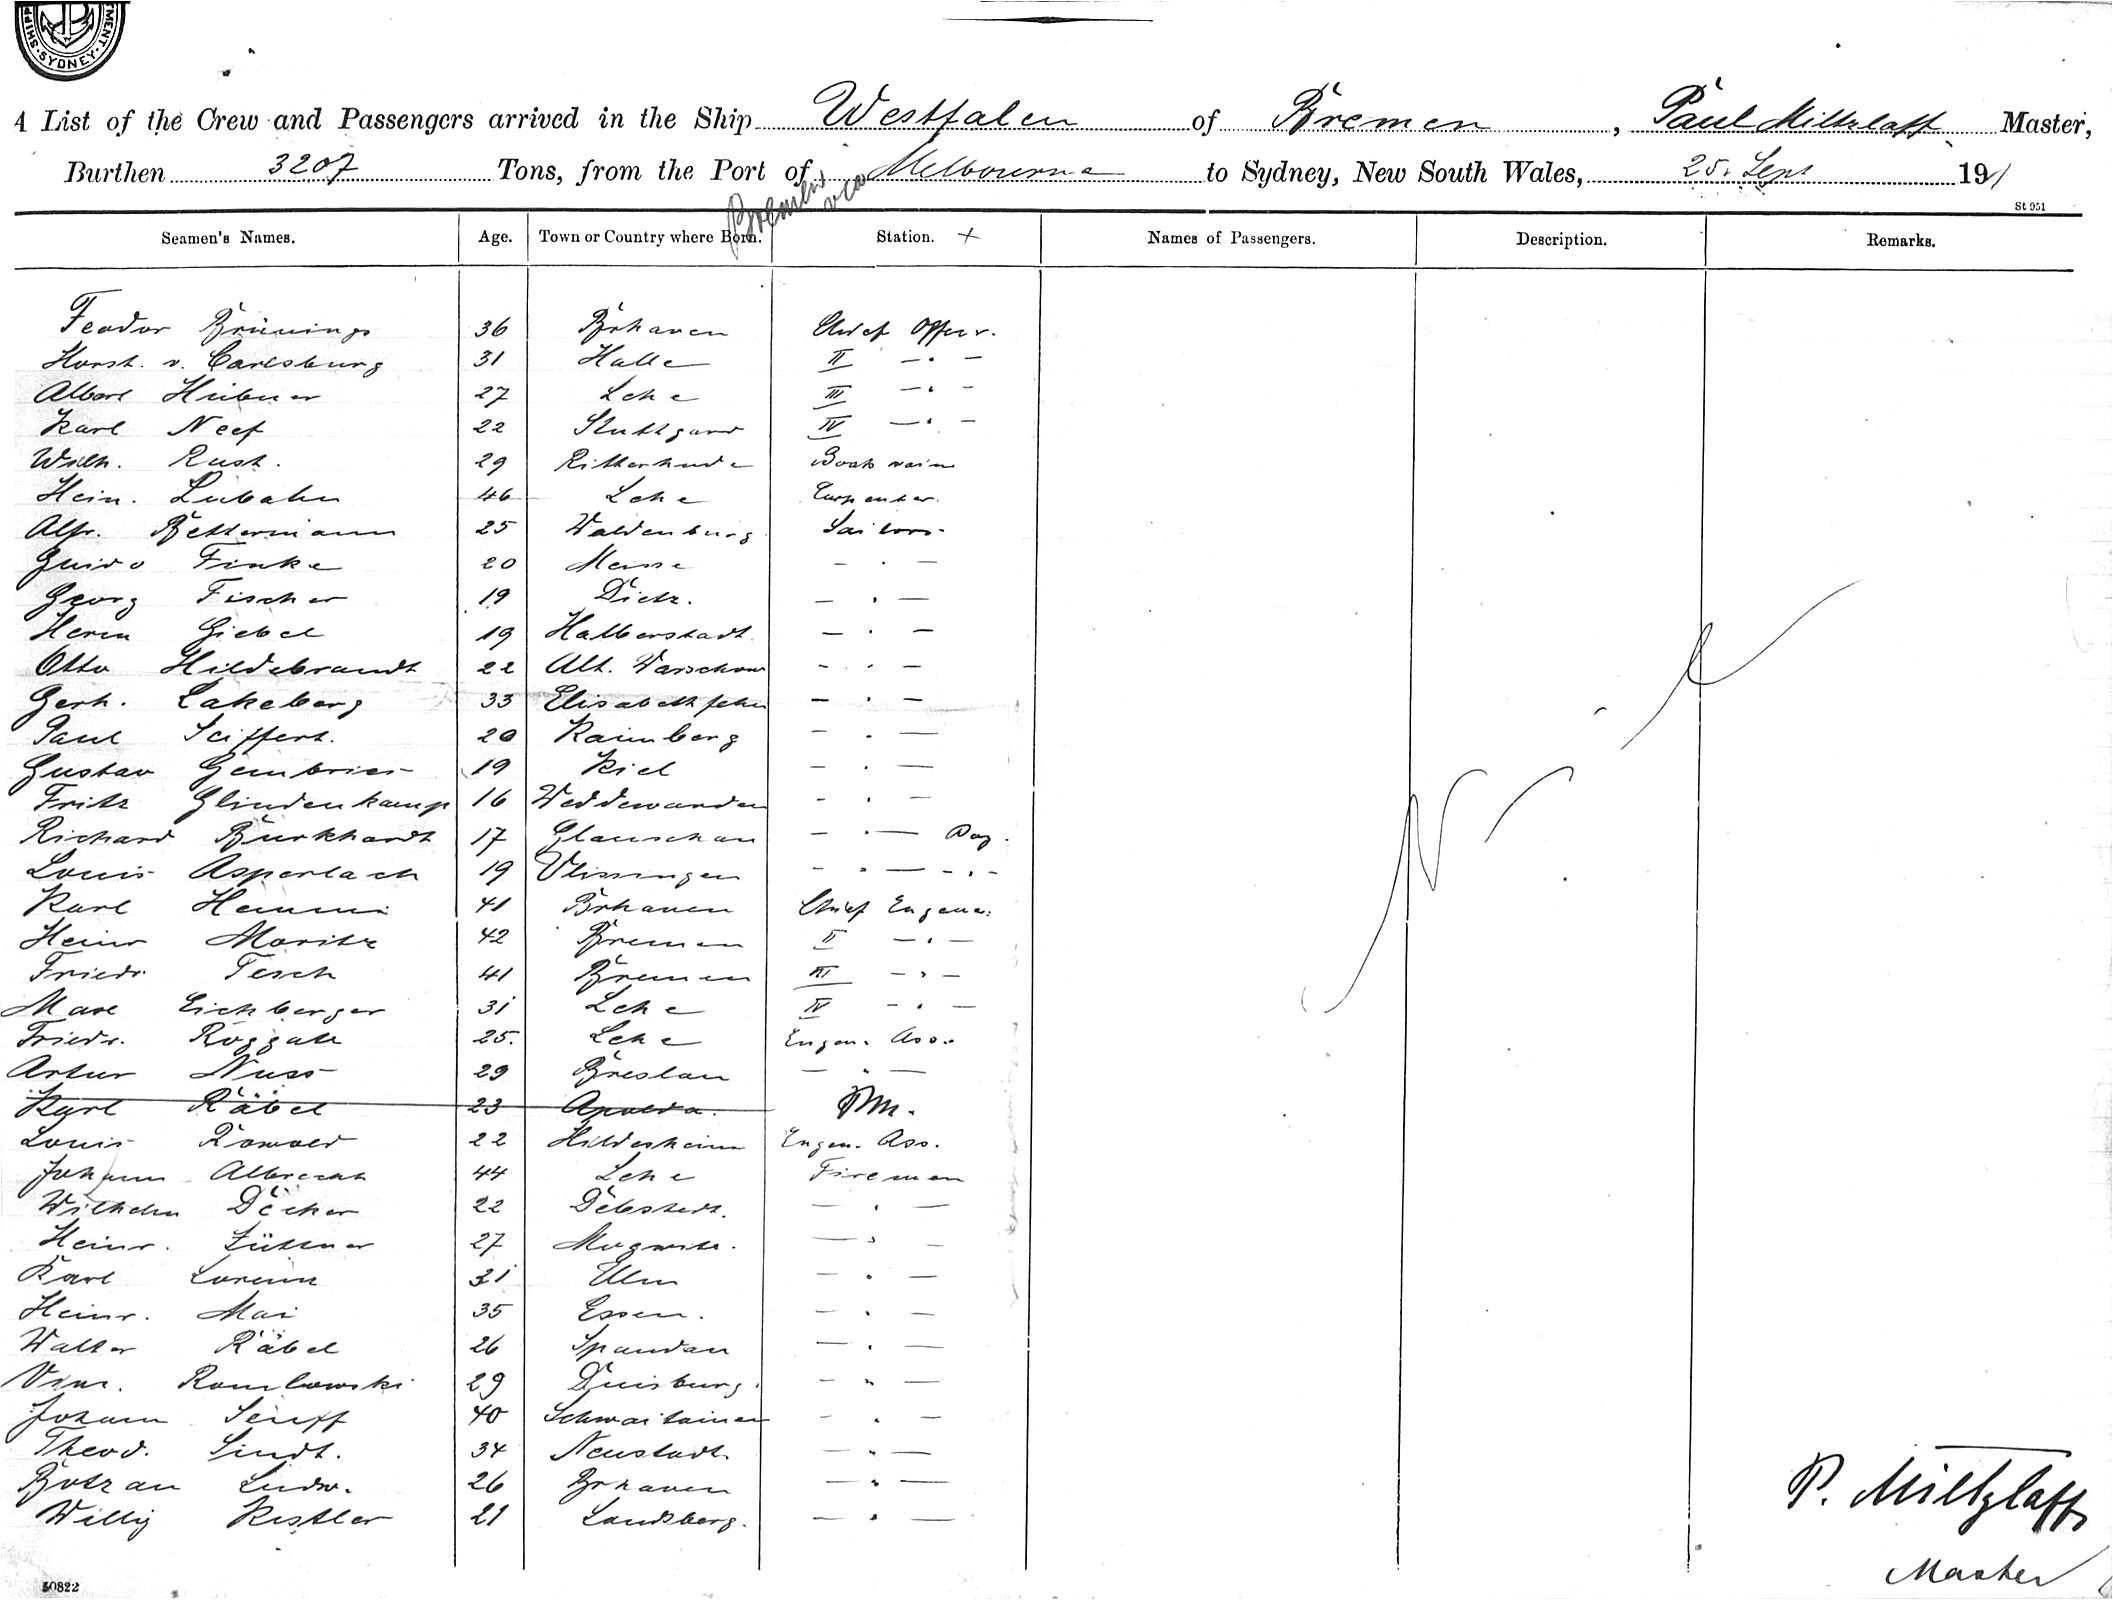 SHIPP
MENT. SYDNEY.
A List of the Crew and Passengers arrived in the Ship Westfalen of Bremen, Paul Miltzlaff Master,
Burthen 3207 Tons, from the Port of Bremen via Melbourne to Sydney, New South Wales, 25. Sept 1911
St 951
Seamen's Names. Age. Town or Country where Born. Station. + Names of Passengers. Description. Remarks.
Feodor Brünings 36 Brhaven Chief Officer.
Horst. v. Carlsburg 31 Halle II — . —
Albert Hübner 27 Lehe III — . —
Karl Neef 22 Stuttgard IV — . —
Wilh. Rust. 29 Ritterhude Boatswain
Hein. Lubahn 46 Lehe Carpenter.
Alfr. Bettermann 25 Waldenburg Sailors.
Guido Finke 20 — . —
Georg Fischer 19 Dietz. — . —
Herm Giebel 19 Halberstadt — . —
Otto Hildebrandt 22 Alt. Warschow — . —
Gerh. Lakeberg 33 Elisabethfehn — . —
Paul Seiffert. 20 Raimberg — . —
Gustav Gembries 19 Kiel — . —
Fritz Glindenkamp 16 Weddewarden — . —
Richard Burkhardt 17 Glauschau — . — Boy.
Louis Asperlach 19 Vlissingen — . — — . —
Karl Hemmi 41 Brhaven Chief Engeneer.
Heinr Moritz 42 Bremen II — . —
Friedr. Tesch 41 Bremen III — . —
Max Eichberger 31 Lehe IV — . —
Friedr. Roggatz 25. Lehe Engen. Ass.
Artur Nuss 29 Breslau — " —
Karl Räbel 23 Apolda.
Louis Rowold 22 Hildesheim Engen. Ass.
Johann Albrecht 44 Lehe Fireman
Wilhelm Döcker 22 Debstedt. — . —
Heinr. Züttner 27 — " —
Karl Lorenz 31 Ulm — . —
Heinr. Mai 35 Essen. — . —
Walter Räbel 26 Spandau — . —
Romlowski 29 Duisburg. — " —
Johann Senff 40 — . —
Theod. Lindt. 34 Neustadt — " —
Botzan Ludw. 26 Brhaven — " —
Willy Kistler 21 Landsberg. — " —
Nil
P. Miltzlaff
Master
50822